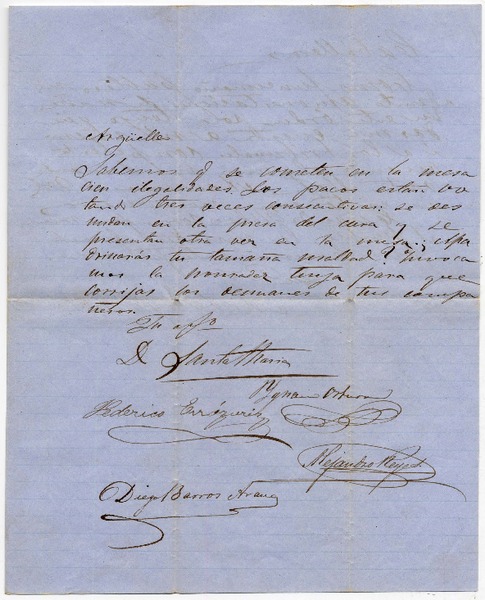 Argüelles
Sabemos q se cometen en la mesa
cien ilegalidades. Los pacos están vo
tando tres veces consecutivas: se des
nudan en la presa del cura y se
presentan otra vez en la mesa; ¿apa
drinarás tu tamaña maldad? Invoca
mos la honradez tuya para que
corrijas los desmanes de tus compa
ñeros.
Tu afmo
D Santa Maria
Federico Errázuriz
Alejandro Reyes
Diego Barros Arana